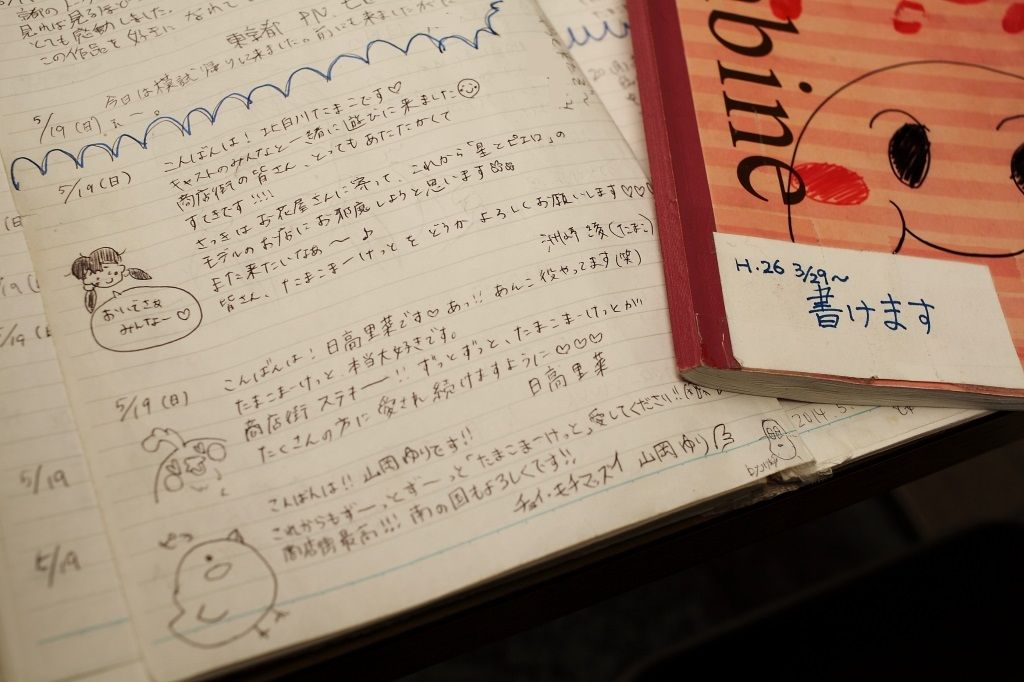 見れば見るほど
とても感動しました。
この作品を好きに
東京都 P.N.
今日は模試帰りに来ました。前にも来ましたが
5/19(日)
5/19(日)
こんばんは!北白川たまこです♡
キャストのみんなと一緒に遊びに来ました
商店街の皆さん、とってもあたたかくて
すてきです!!!!
さっきは お花屋さんに寄って、これから「星とピエロ」の
モデルのお店にお邪魔しようと思います
また来たいなぁ〜♪
皆さん、たまこまーけっとを どうか よろしくお願いします♡♡♡
洲崎 綾(たまこ)
おいでませ
みんなー♡
5/19(日)
こんばんは!日高里菜です♡あっ!!あんこ役やってます(笑)
たまこまーけっと、本当大好きです。
商店街 ステキー!!ずっとずっと、たまこまーけっとが
たくさんの方に 愛され続けますように♡♡♡
日高里菜
5/19
こんばんは!!山岡ゆりです!!
これからもずーっとずーっと「たまこまーけっと」愛してください!!
商店街最高!!!南の国もよろしくです!!
チョイ・モチマッズイ 山岡ゆり
5/19
2014.5
bine
H.26 3/29〜
書けます